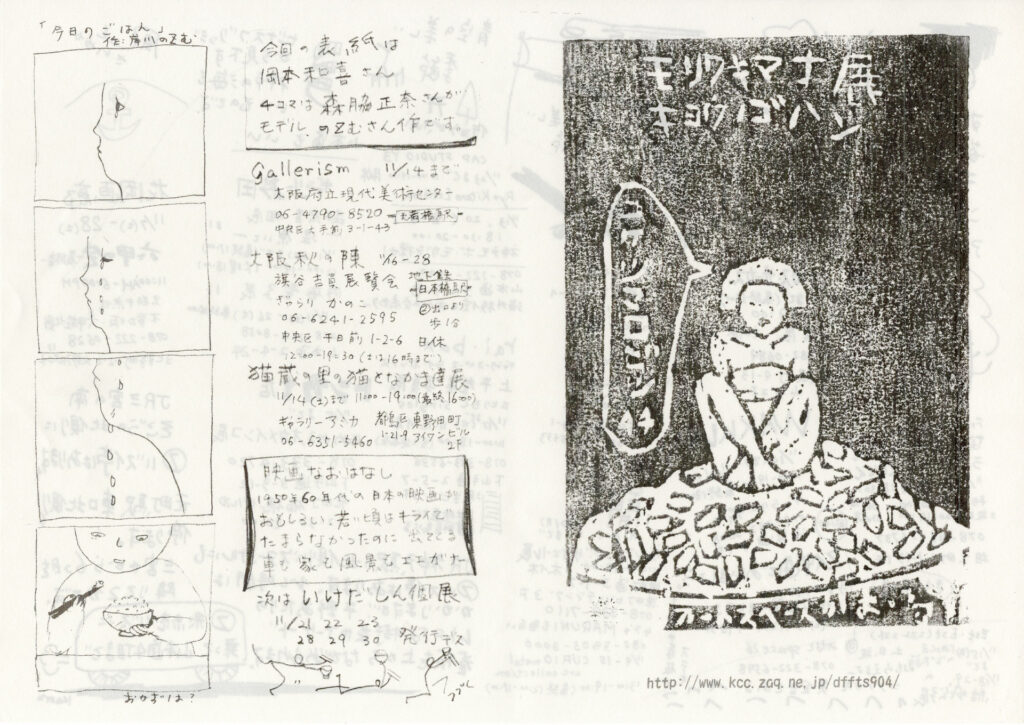 「今日のごはん」
作:岸川のぞむ
おかずは?
今回の表紙は
岡本和喜さん
4コマは森脇正奈さんが
モデル のぞむさん作です。
Gallerism 11/14まで
大阪府立現代美術センター
06-4790-8520
中央区大手前3-1-43
大阪秋の陳 11/16-28
旗谷吉員展覧会 地下鉄
ぎゃらり かのこ 日本橋駅
06-6241-2595 ②出口より
歩1分
中央区千日前1-2-6 日休
12:00-19:30(土は16時まで)
猫蔵の里の猫となかま達展
11/14(土)まで 11:00-19:00(最終16:00)
ギャラリーアミカ 都島区東野田町
06-6351-5460 1-21-9 アイワンビル
2F
映画なおはなし
1950年60年代の日本の映画が
おもしろい。若い頃はキライで
たまらなかったのに 出てくる
車も家も風景も
次はいけだしん個展
11/21 22 23
28 29 30 発行デス
モリワキマサナ展
キョウノゴハン
http://www.kcc.zaq.ne.jp/dffts904/